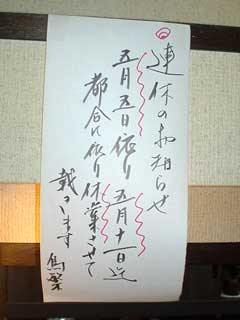 連休のお知らせ
五月五日依り
五月十一日迄
都合に依り休業させて
戴きます